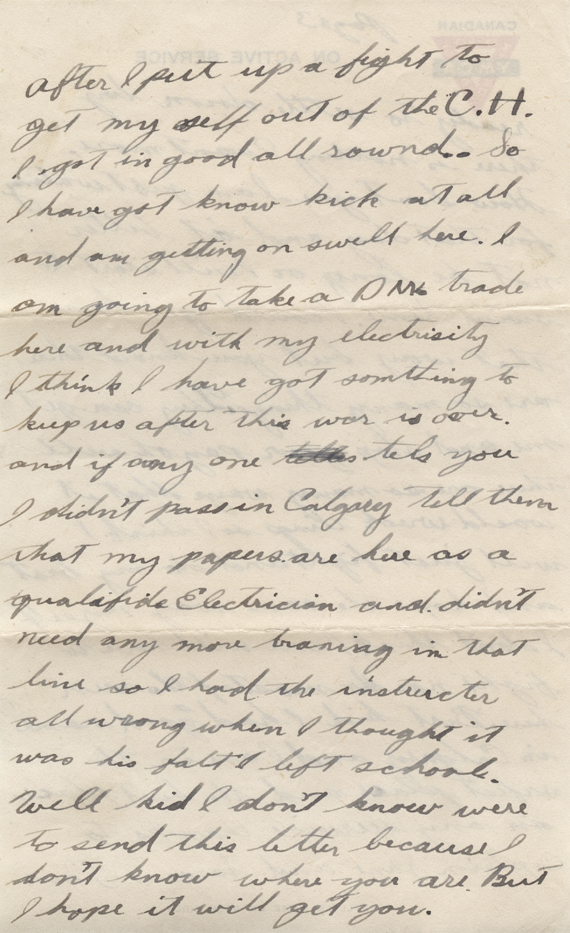 after I put up a fight to
get my self out of the C.H.
I got in good all round.. So
I have got know kick at all
and am getting on swell here. I
am going to take a trade
here and with my electrisity
I think I have got somthing to
kup us after this war is over.
and if any one tels you
I didn't pass in Calgary tell them
that my papers are here as a
qualafide Electrician and didn't
need any more traning in that
line so I had the instructer
all wrong when I thought it
was his falt I left school.
Well kid I don't know were
to send this letter because I
don't know where you are. But
I hope it will get you.